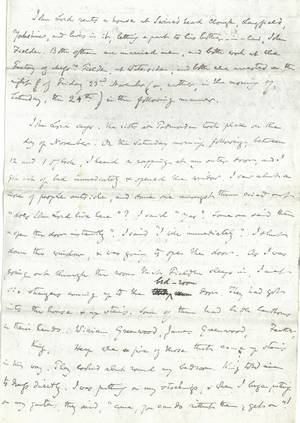 John Lord rents a house at Swineshead Clough, Langfield,
Yorkshire, and lives in it, letting a part to two lodgers,
Fielden. Both of them are married men, and both work at the
factory of Messrs Fielden, at Waterside, and both were arrested on the
night of Friday 23rd November or, rather, in the morning of
Saturday, the 24th in the following manner.
John Lord says, the riots at Todmorden took place on the
day of November. On the Saturday morning following, between
12 and 1 o'clock, I heard a rapping at my outer door, and I
got out of bed immediately & opened the window. I saw about a
score of people outside, and some one amongst them cried out
"does John Lord live here"? I said "yes". Some one said then
"open the door instantly". I said "I will immediately". I shut
down this window, & was going to open the door. As I was
going out through the room Fielden sleeps in, I met
six strangers coming up to the bed-room door. They had got
into the house & up stairs, some of them had both lanthorns
in their hands. William Greenwood, James Greenwood,
King, Heap were & five of those that came up stairs
in this way. They looked about round my bedroom. King told me
to dress directly. I was putting on my stockings, & when I began putting
on my garters, they said, "come, you can do without them; get on" I